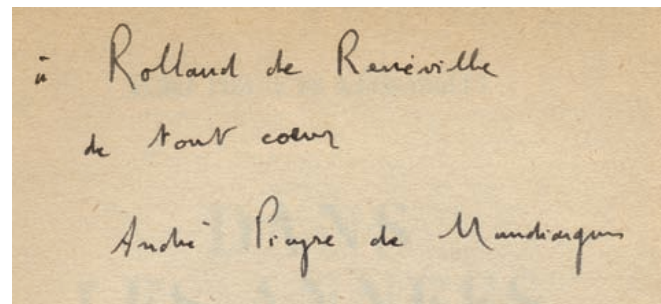 à Rolland de Renéville
de tout cœur
André Pieyre de Mandiargues